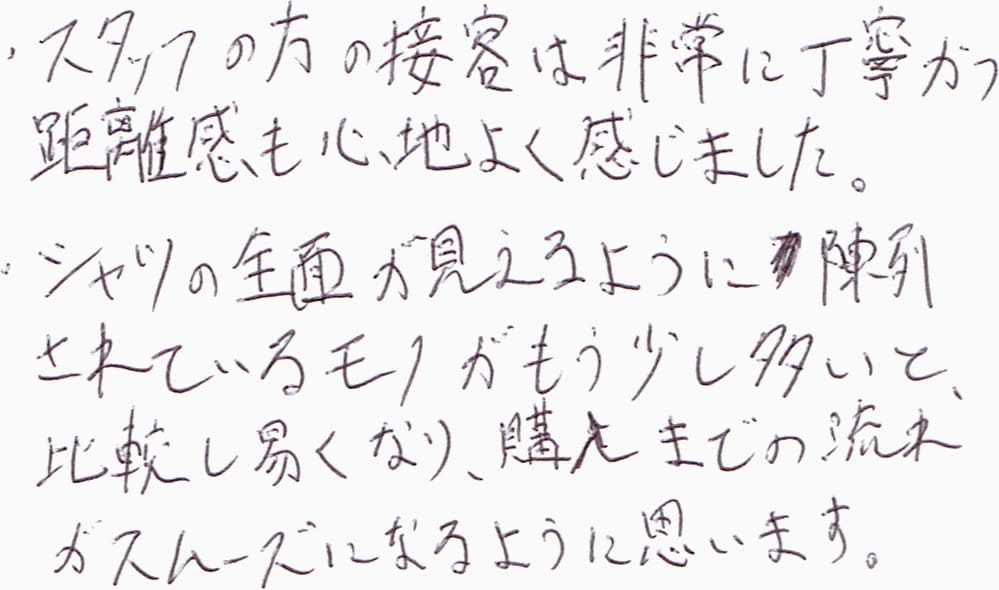 ・スタッフの方の接客は非常に丁寧かつ
距離感も心地よく感じました。
・シャツの全面が見えるように陳列
されているモノがもう少し多いと、
比較し易くなり、購入までの流れ
がスムーズになるように思います。